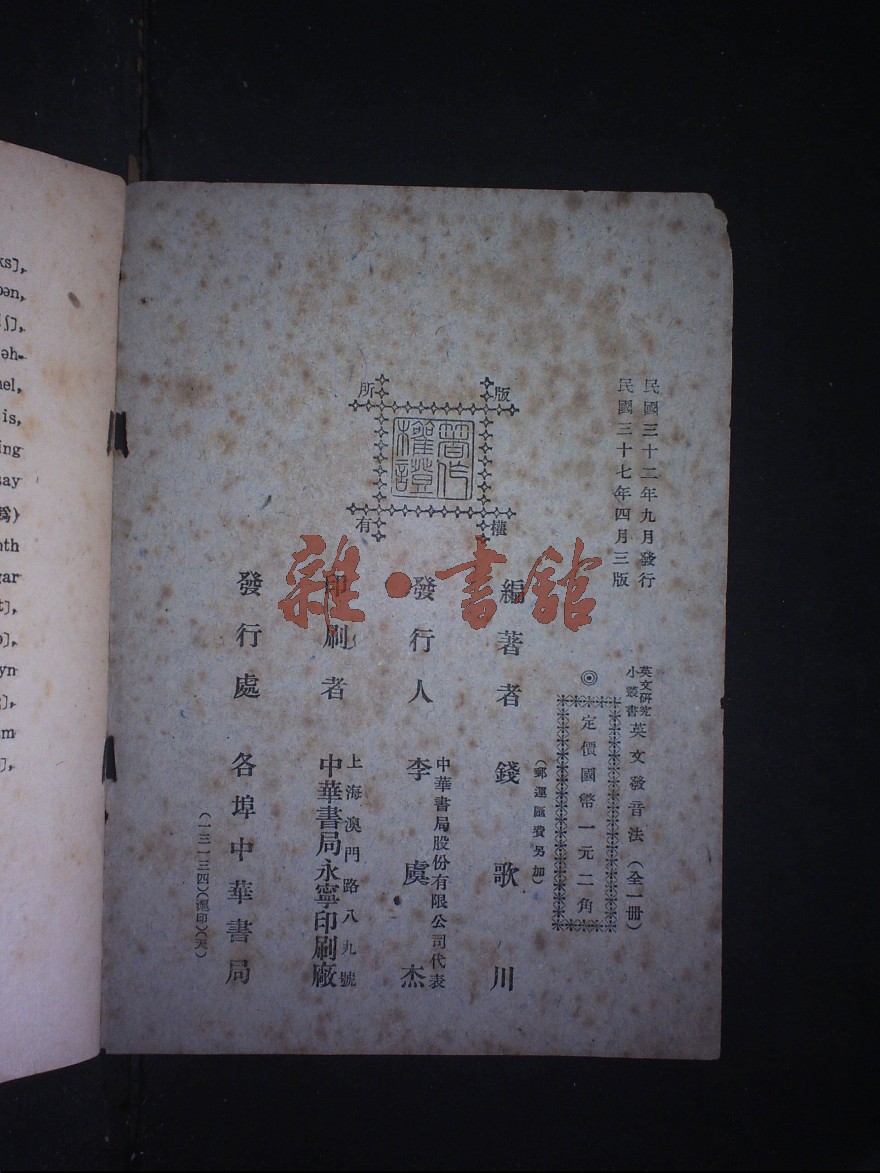 民國三十二年九月發行
民國三十七年四月三版
英文研究
小叢書
英文發音法（全一冊）
◎定價國幣一元二角
（郵運匯費另加）
版權所有
著作權證
編著者 錢歌川
發行人 中華書局股份有限公司代表
李虞杰
印刷者 上海澳門路八九號
中華書局永寧印刷廠
發行處 各埠中華書局
（一三一三四）（滬印）（天）
雜·書舘
ks],
ʃ],
nel,
is,
ing
say
爲)
nth
gar
t],
yn